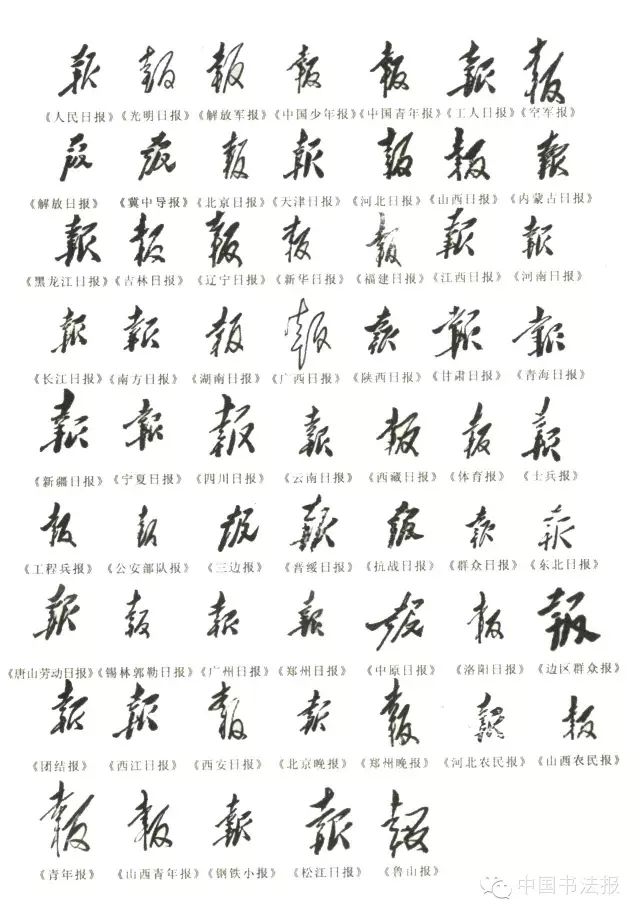 報 報 報 報 報 報 報
《人民日报》 《光明日报》 《解放军报》 《中国少年报》 《中国青年报》 《工人日报》 《空军报》
報 報 報 報 報 報 報
《解放日报》 《冀中导报》 《北京日报》 《天津日报》 《河北日报》 《山西日报》 《内蒙古日报》
報 報 報 報 報 報 報
《黑龙江日报》 《吉林日报》 《辽宁日报》 《新华日报》 《福建日报》 《江西日报》 《河南日报》
報 報 報 報 報 報 報
《长江日报》 《南方日报》 《湖南日报》 《广西日报》 《陕西日报》 《甘肃日报》 《青海日报》
報 報 報 報 報 報 報
《新疆日报》 《宁夏日报》 《四川日报》 《云南日报》 《西藏日报》 《体育报》 《士兵报》
報 報 報 報 報 報 報
《工程兵报》 《公安部队报》 《三边报》 《晋绥日报》 《抗战日报》 《群众日报》 《东北日报》
報 報 報 報 報 報 報
《唐山劳动日报》 《锡林郭勒日报》 《广州日报》 《郑州日报》 《中原日报》 《洛阳日报》 《边区群众报》
報 報 報 報 報 報 報
《团结报》 《西江日报》 《西安日报》 《北京晚报》 《郑州晚报》 《河北农民报》 《山西农民报》
報 報 報 報 報
《青年报》 《山西青年报》 《钢铁小报》 《松江日报》 《鲁山报》
中国书法报